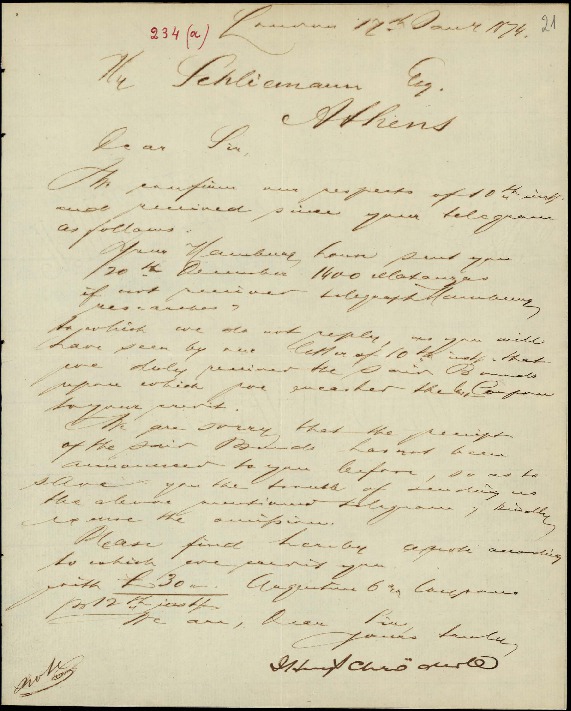 21
234 (a)
London 17th Jany 1874.
Hy Schliemann Esq.
Athens
Dear Sir,
We confirm our respects of 10th inst.
and received since your telegram
as follows.
Your Hamburg house sent you
20th December 1400 Matanzas
if not received telegraph Hamburg
researches"
to which we do not reply, as you will
have seen by our letter of 10th inst. that
we duly received the said Bonds
upon which we encashed the Coupons
to your credit.
We are sorry that the receipt
of the said Bonds has not been
announced to you before, so as to
save you the trouble of sending us
the above mentioned telegram, kindly
excuse the omission.
Please find hereby a note according
to which we credit you
with £ 30 Augustus Coupons
12th inst.
We are, Dear Sir,
yours truly
J Henry Schröder & Co
note